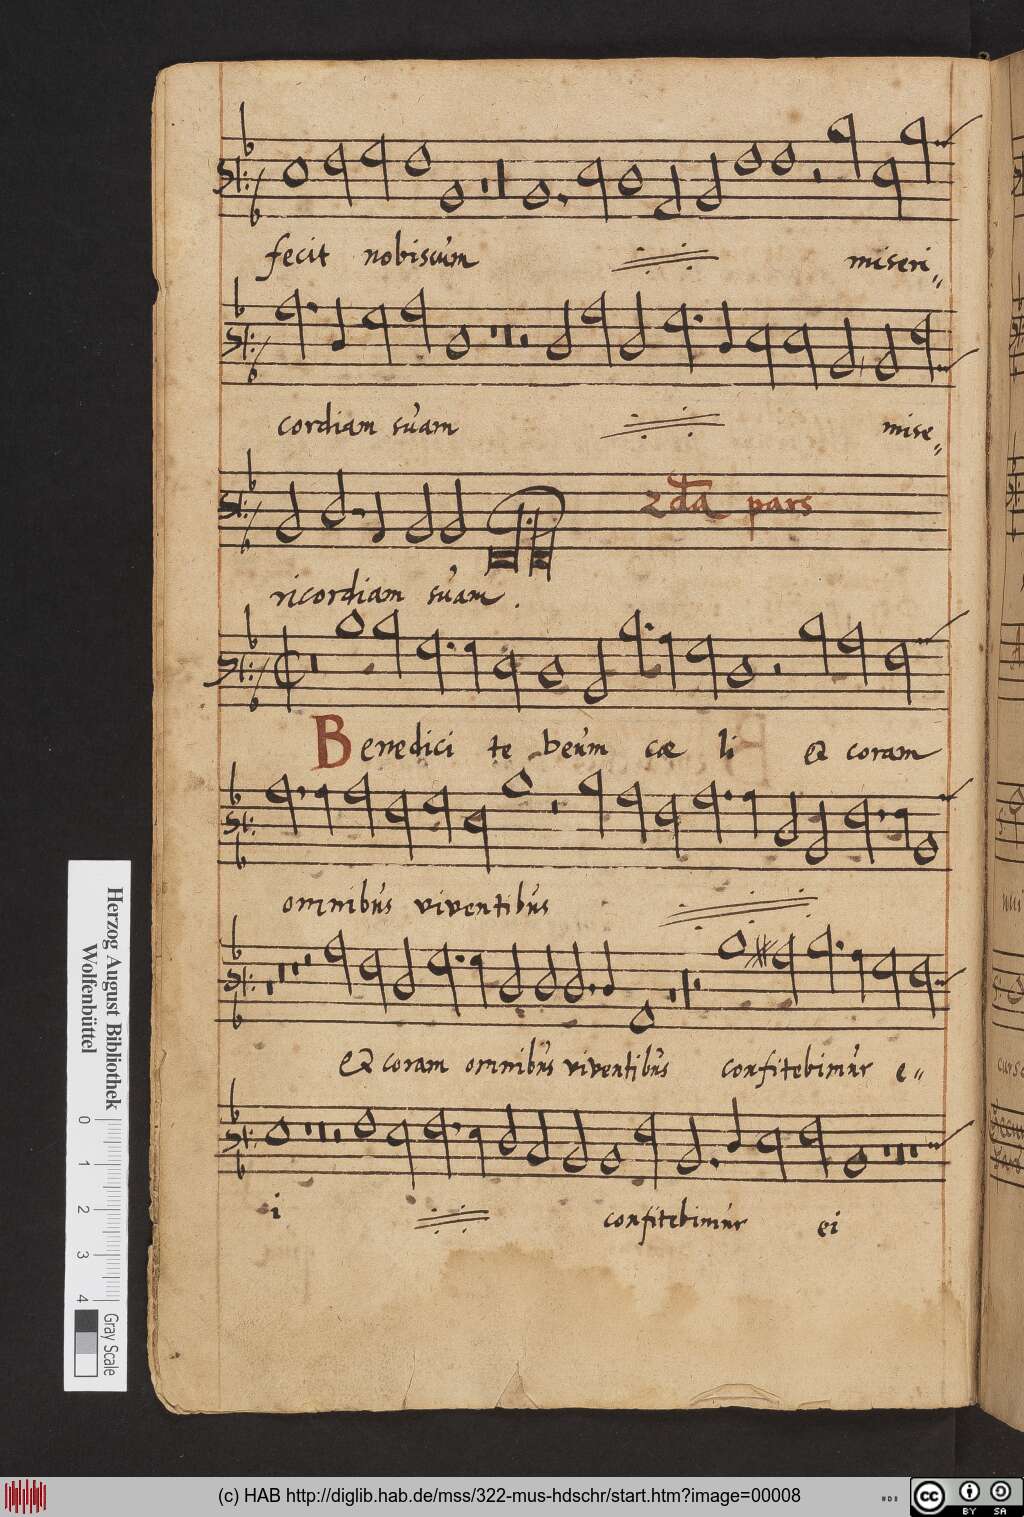 fecit nobiscum miseri„
cordiam suam mise„
2da pars
ricordiam suam.
Benedici te deum cæ li & coram
omnibus viventibus
& coram omnibus viventibus confitebimur e„
i confitebimur ei
Herzog August Bibliothek
Wolfenbüttel
0 1 2 3 4
Gray Scale
(c) HAB http://diglib.hab.de/mss/322-mus-hdschr/start.htm?image=00008
cc BY SA